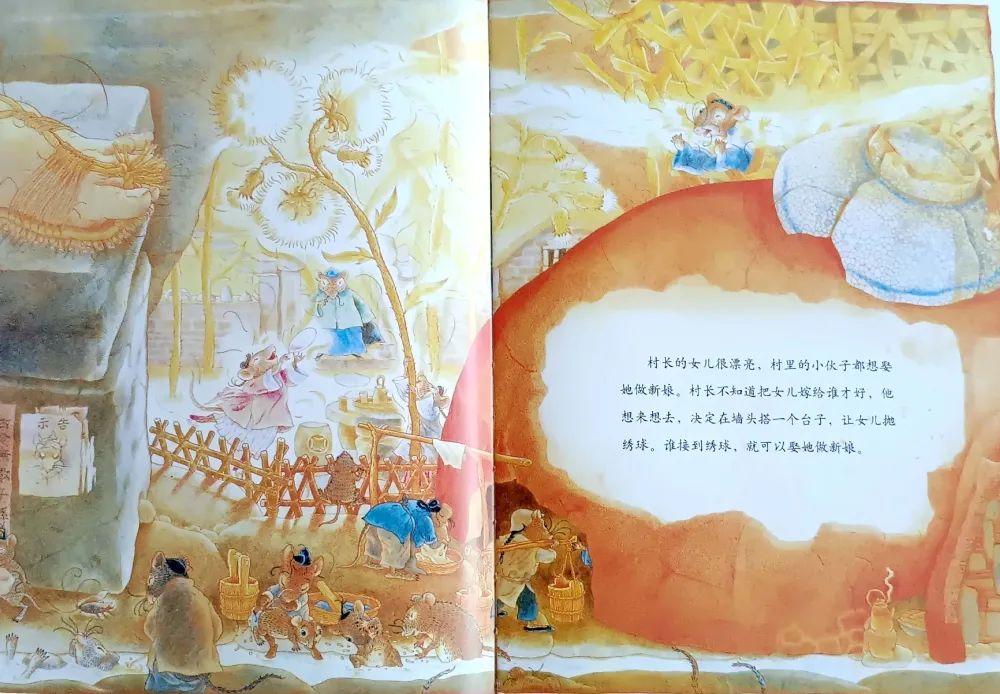 示告
村长的女儿很漂亮，村里的小伙子都想娶
她做新娘。村长不知道把女儿嫁给谁才好，他
想来想去，决定在墙头搭一个台子，让女儿抛
绣球。谁接到绣球，就可以娶她做新娘。